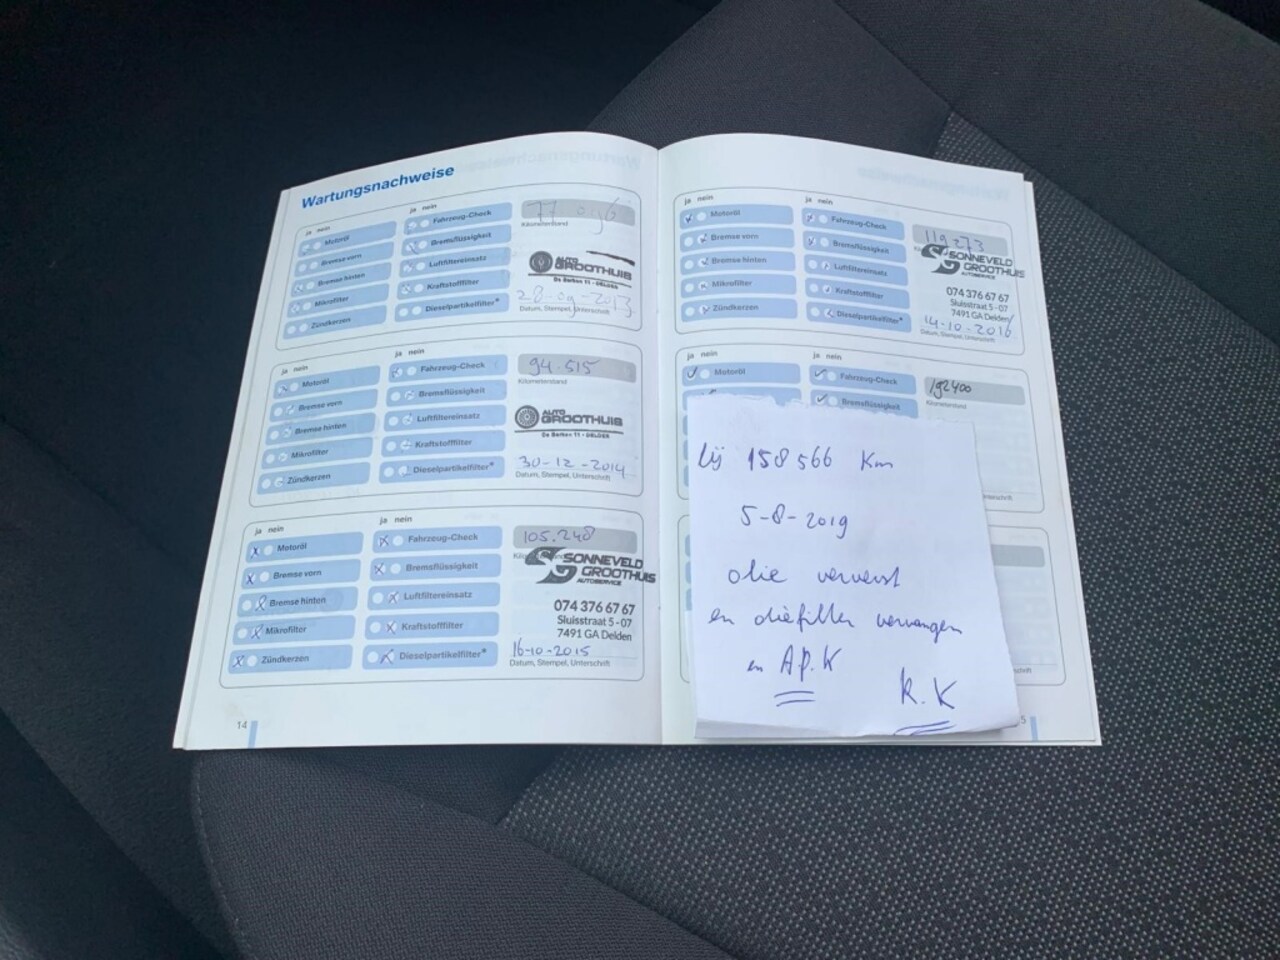 Wartungsnachweise
ja nein
Motoröl
Bremse vorn
Bremse hinten
Mikrofilter
Zündkerzen
ja nein
Fahrzeug-Check
Bremsflüssigkeit
Luftfiltereinsatz
Kraftstofffilter
Dieselpartikelfilter*
77 096
Kilometerstand
AUTO
GROOTHUIS
De Berken 11 - DELDEN
28-09-2013
Datum, Stempel, Unterschrift
ja nein
Motoröl
Bremse vorn
Bremse hinten
Mikrofilter
Zündkerzen
ja nein
Fahrzeug-Check
Bremsflüssigkeit
Luftfiltereinsatz
Kraftstofffilter
Dieselpartikelfilter*
94.515
Kilometerstand
AUTO
GROOTHUIS
De Berken 11 - DELDEN
30-12-2014
Datum, Stempel, Unterschrift
ja nein
Motoröl
Bremse vorn
Bremse hinten
Mikrofilter
Zündkerzen
ja nein
Fahrzeug-Check
Bremsflüssigkeit
Luftfiltereinsatz
Kraftstofffilter
Dieselpartikelfilter*
105.248
SONNEVELD
GROOTHUIS
AUTOSERVICE
074 376 67 67
Sluisstraat 5 - 07
7491 GA Delden
16-10-2015
Datum, Stempel, Unterschrift
14
ja nein
Motoröl
Bremse vorn
Bremse hinten
Mikrofilter
Zündkerzen
ja nein
Fahrzeug-Check
Bremsflüssigkeit
Luftfiltereinsatz
Kraftstofffilter
Dieselpartikelfilter*
119273
SONNEVELD
GROOTHUIS
AUTOSERVICE
074 376 67 67
Sluisstraat 5 - 07
7491 GA Delden
14-10-2016
Datum, Stempel, Unterschrift
ja nein
Motoröl
ja nein
Fahrzeug-Check
Bremsflüssigkeit
192400
Kilometerstand
bij 158566 Km
5-8-2019
olie ververst
en oliefilter vervangen
en A.P.K
R.K
5